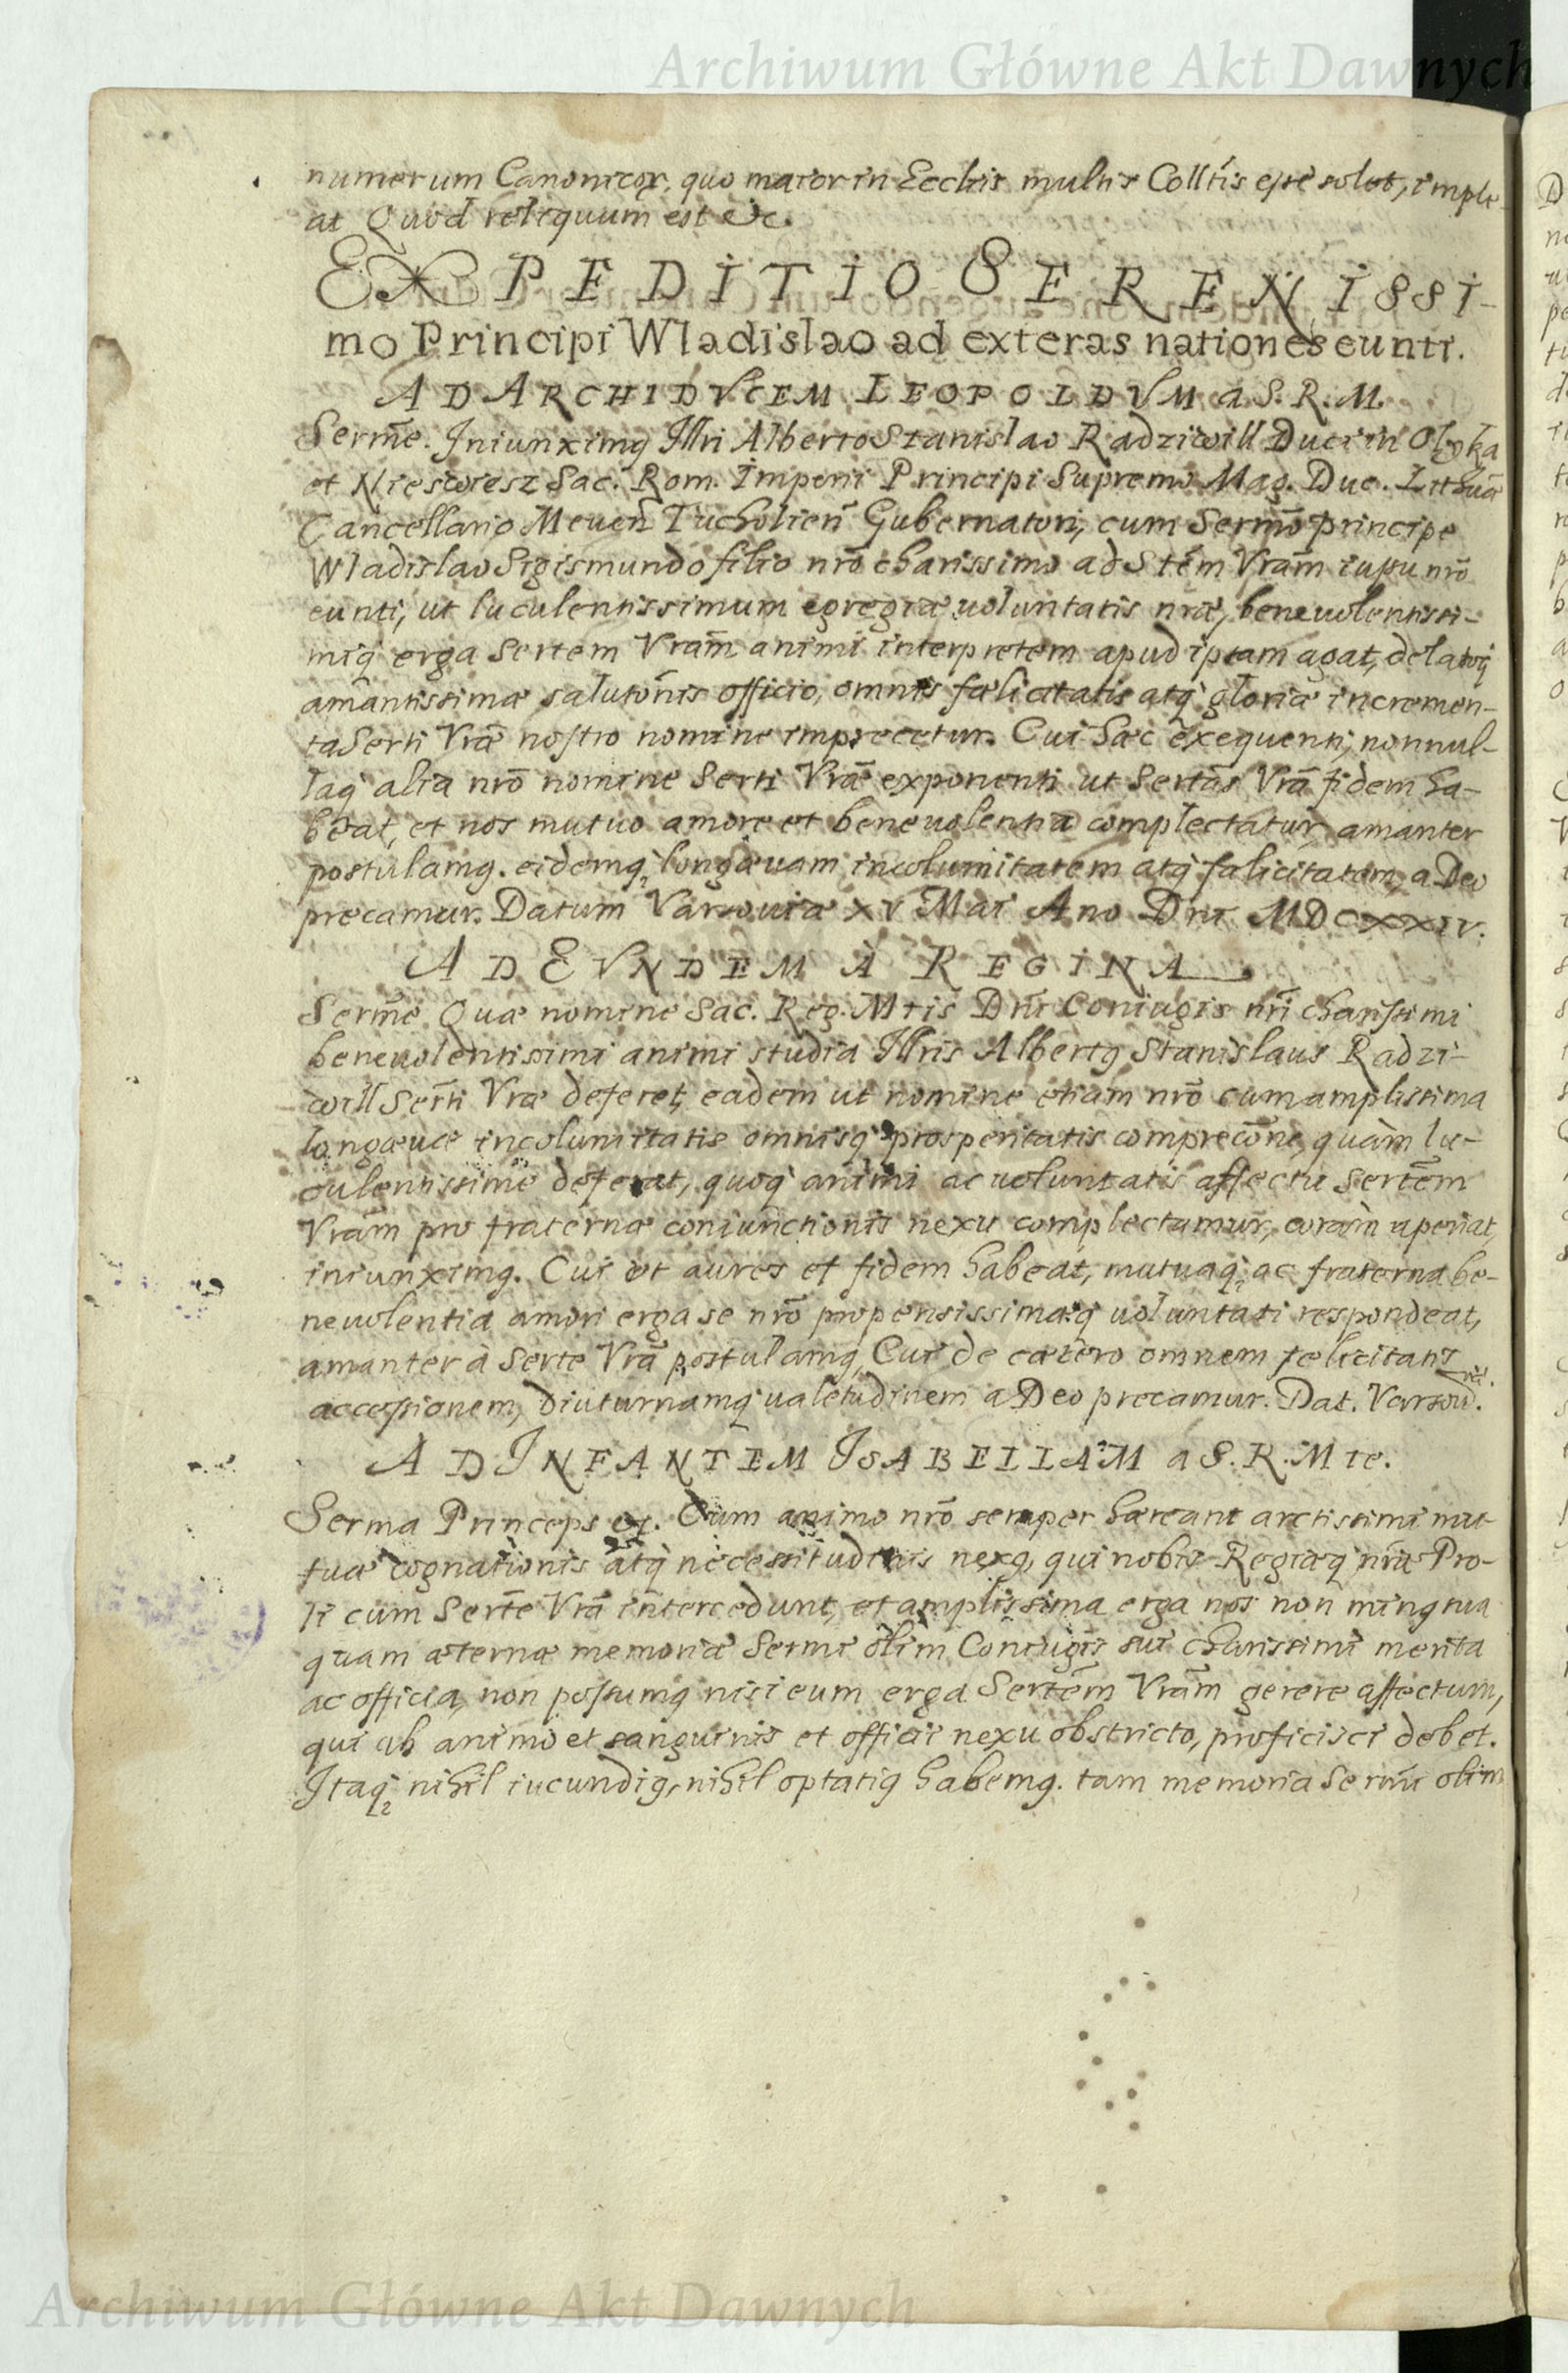 Archiwum Główne Akt Dawnych
numerum Canonicor, quo maior in Ecclīis multis Collt̄is esse solet, imple-
at Quod reliquum est &c.
EXPEDITIO SERENISSI-
mo Principi Wladislao ad exteras nationes eunti.
AD ARCHIDVCEM LEOPOLDVM a S. R. M.
Serm̄e. Iniunximq Illri Alberto Stanislao Radziwill Duci in Olyka
et Nieswiesz Sac. Rom. Imperii Principi Supremo Mag. Duc. Lithuā
Cancellario Meuen̄ Tucholien̄ Gubernatori, cum Serm̄o Principe
Wladislao Sigismundo filio nrō charissimo ad Stēm Vrām iussu nrō
eunti, ut luculentissimum egregiæ uoluntatis nræ, beneuolentissi-
miq erga Sertem Vrām animi interpretem apud ipsam agat, delatoq
amantissimæ salutōnis officio, omnis fælicitatis atq gloriæ incremen-
ta Serti Vræ nostro nomine imprecetur. Cui hæc exequenti, nonnul-
laq alia nrō nomine Serti Vræ exponenti ut Sertās Vrā fidem ha-
beat, et nos mutuo amore et beneuolentia complectatur, amanter
postulamq. eidemq longæuam incolumitatem atq fælicitatem, a Deo
precamur. Datum Varsouiæ XV Mai Ano Dni MDCXXIV.
AD EVNDEM À REGINA
Serm̄e Quæ nomine Sac. Reg. Mtis Dn̄i Coniugis nrī charissimi
beneuolentissimi animi studia Illris Albertq Stanislaus Radzi-
will Serti Vræ deferet, eadem ut nomine etiam nrō cum amplissima
longæuæ incolumitatis omnisq prosperitatis comprecōne, quàm lu-
culentissime deferat, quoq animi ac uoluntatis affectu Sertēm
Vrām pro fraternæ coniunctionis nexu complectamur, coram aperiat,
iniunximq. Cui ut aures et fidem habeat, mutuaq ac fraterna be-
neuolentia amori erga se nrō propensissimæq uoluntati respondeat,
amanter à Serte Vrā postulamq, Cui de cætero omnem felicitatis
accessionem, diuturnamq ualetudinem a Deo precamur. Dat. Varsou.
AD INFANTEM ISABELLAM a S. R. M te.
Serma Princeps &. Cum animo nrō semper hæreant arctissimi mu-
tuæ cognationis atq necessitudinis nexq, qui nobis Regiæq nræ Pro-
li cum Serte Vrā intercedunt, et amplissima erga nos non minq sua
quam æternæ memoriæ Sermi olim Coniugis sui charissimi merita
ac officia, non possumq nisi eum erga Sertēm Vrām gerere affectum,
qui ab animo et sanguinis et officii nexu obstricto, proficisci debet.
Itaq nihil iucundiq, nihil optatiq habemq. tam memoria Sermi olim
Archiwum Główne Akt Dawnych